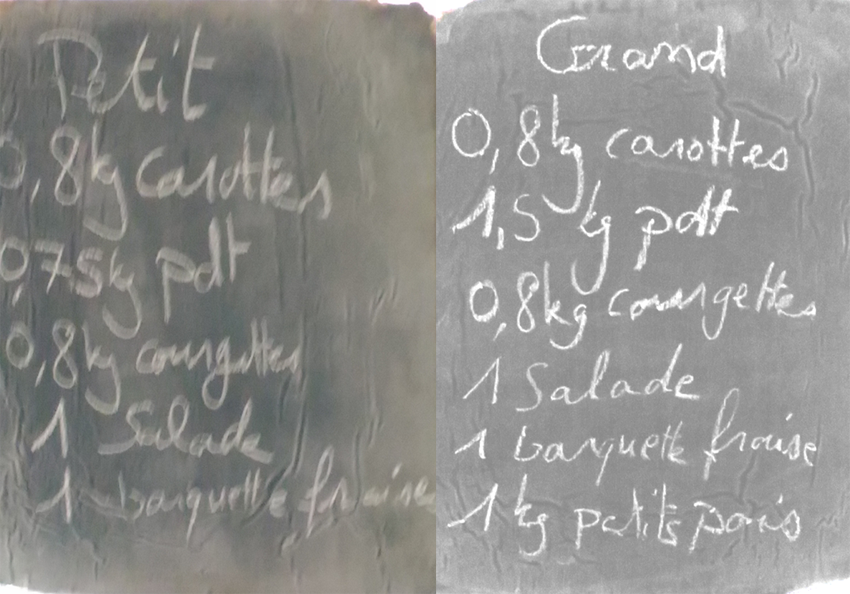 Petit
0,8kg carottes
0,75kg pdt
0,8kg courgettes
1 Salade
1 barquette fraise
Grand
0,8kg carottes
1,5 kg pdt
0,8kg courgettes
1 Salade
1 barquette fraise
1 kg petits pois